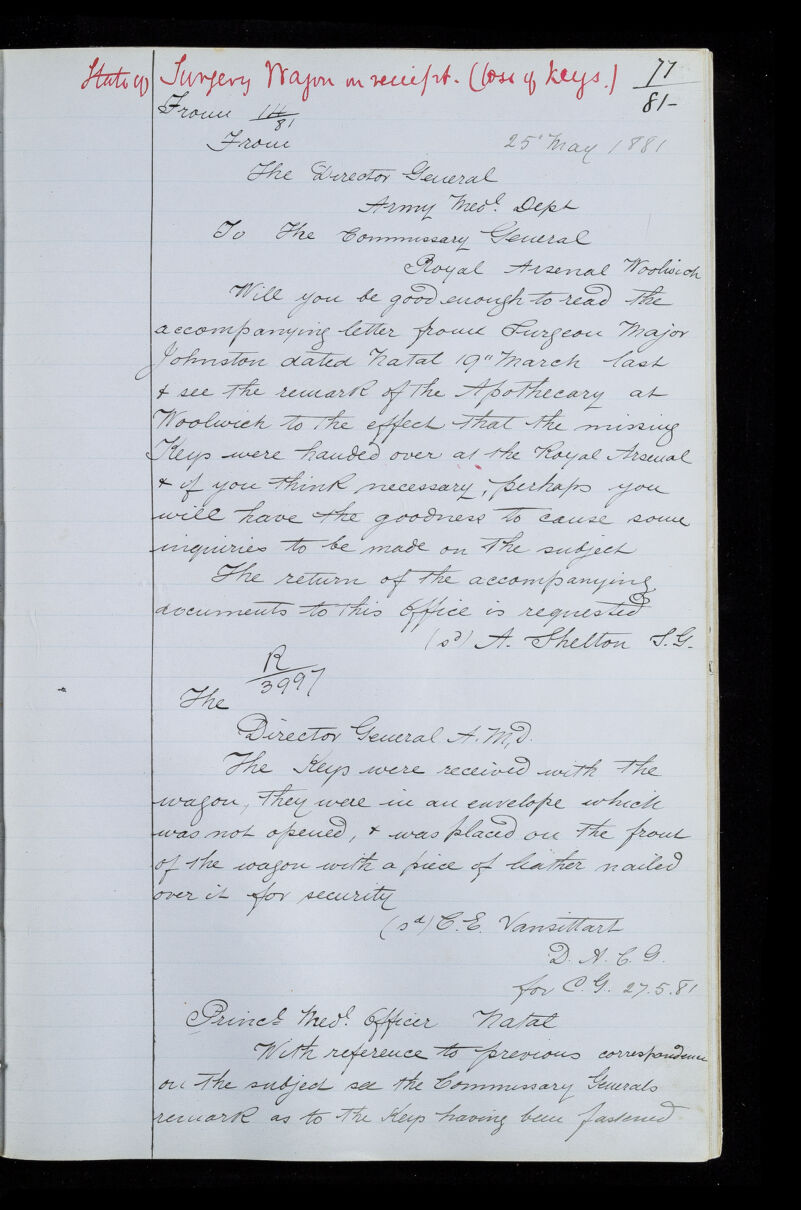 State of Surgery Wagon on receipt. (loss of keys.) 77/81-
From 114/81
From 25th May 1881
The Director General
Army Medl. Dept
To The Commissary General
Royal Arsenal Woolwich
Will you be good enough to read the
accompanying letter from Surgeon Major
Johnston dated Natal 19" March last
& see the remark of the Apothecary at
Woolwich to the effect that the missing
Keys were handed over at the Royal Arsenal
& if you think necessary, perhaps you
will have the goodness to cause some
inquiries to be made on the subject
The return of the accompanying
documents to this Office is requested
(sd) A. Shelton S.G.
R/3997
The
Director General A.M.D.
The Keys were received with the
wagon, they were in an envelope which
was not opened, & was placed on the front
of the wagon with a piece of leather nailed
over it for security
(sd) C.E. Vansittart
D.A.C.G.
for C.G. 27.5.81
Princl Medl. Officer Natal
With reference to previous correspondence
on the subject see the Commissary Generals
remark as to the Keys having been fastened